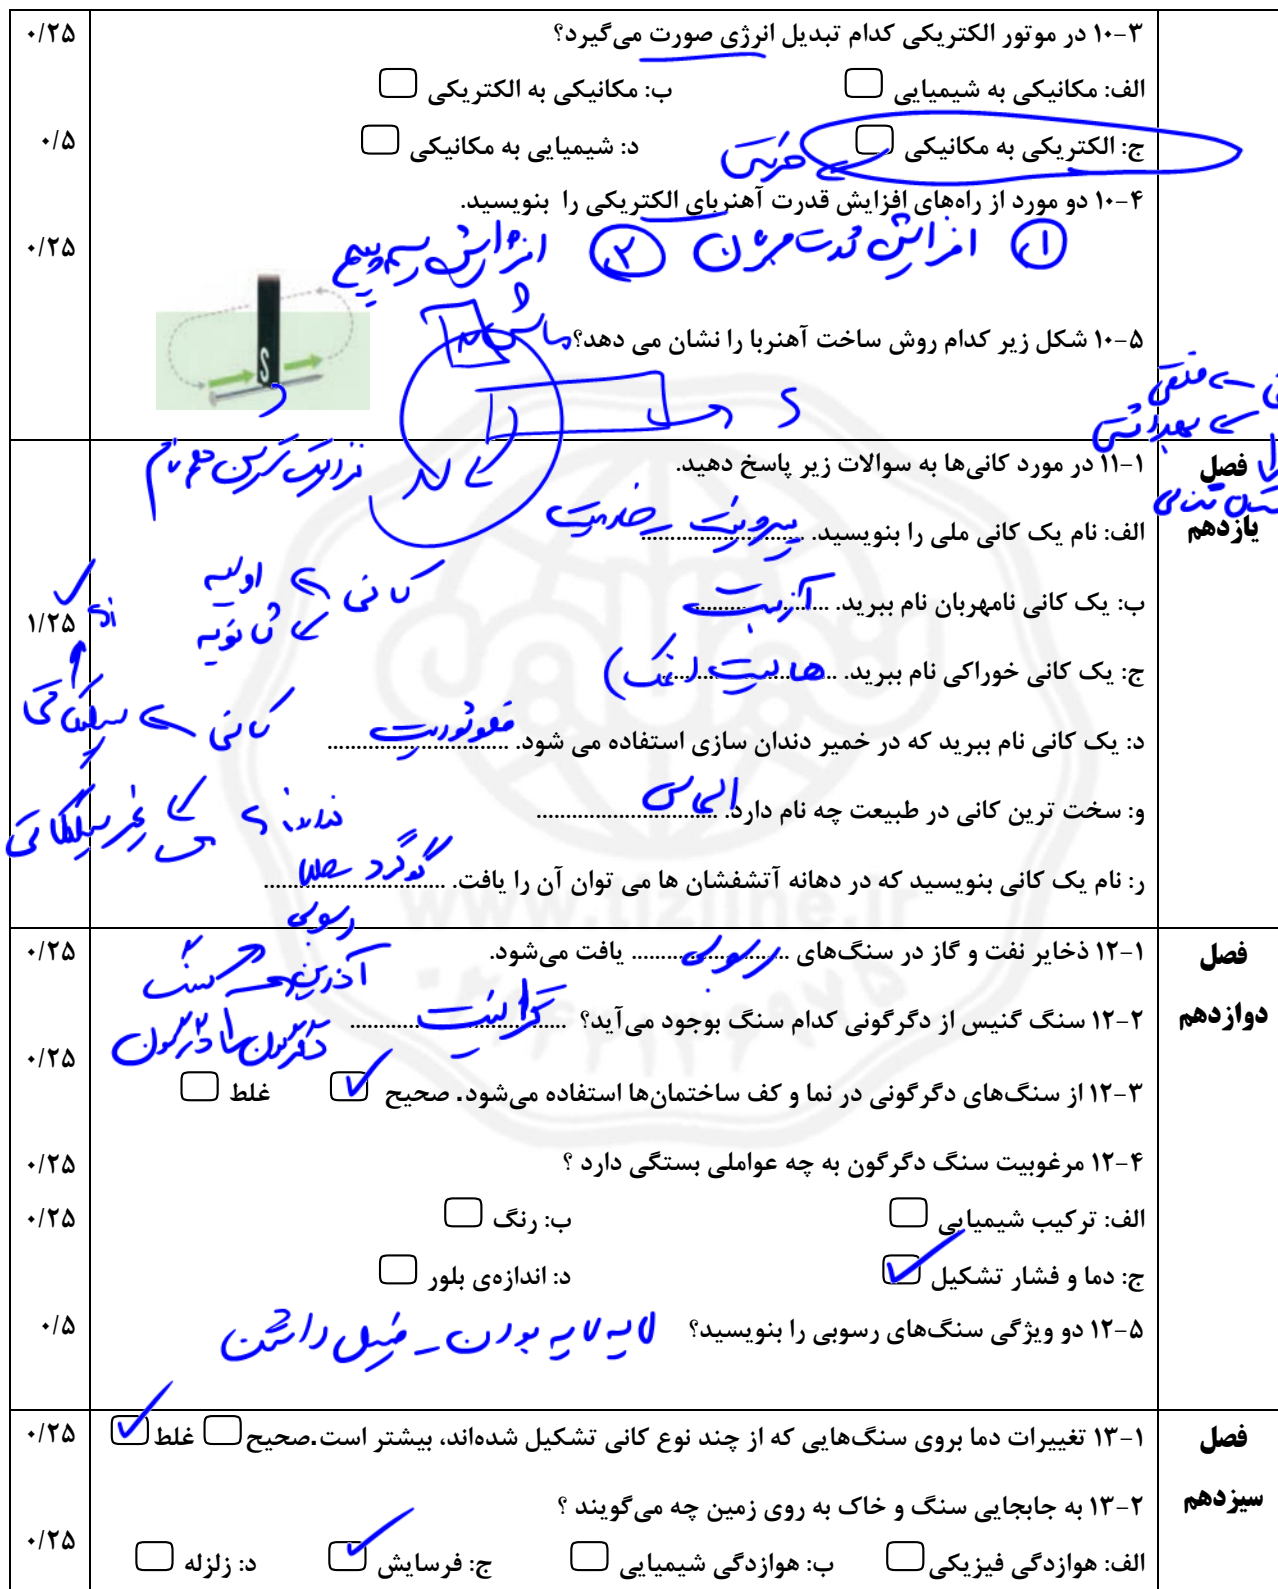 ۱۰-۳ در موتور الکتریکی کدام تبدیل انرژی صورت می‌گیرد؟ ۰/۲۵
الف: مکانیکی به شیمیایی ب: مکانیکی به الکتریکی
ج: الکتریکی به مکانیکی د: شیمیایی به مکانیکی ۰/۵
۱۰-۴ دو مورد از راه‌های افزایش قدرت آهنربای الکتریکی را بنویسید.
۱ افزایش شدت جریان ۲ افزایش سیم پیچ ۰/۲۵
۱۰-۵ شکل زیر کدام روش ساخت آهنربا را نشان می دهد؟ مالش
S
N S
فصل یازدهم
۱۱-۱ در مورد کانی‌ها به سوالات زیر پاسخ دهید.
الف: نام یک کانی ملی را بنویسید.
ب: یک کانی نامهربان نام ببرید. آزبست
کانی اولیه
ثانویه
۱/۲۵ Si
ج: یک کانی خوراکی نام ببرید. هالیت (نمک)
کانی سیلیکاتی
د: یک کانی نام ببرید که در خمیر دندان سازی استفاده می شود. فلوئوریت
غیر سیلیکاتی
و: سخت ترین کانی در طبیعت چه نام دارد. الماس
ر: نام یک کانی بنویسید که در دهانه آتشفشان ها می توان آن را یافت. گوگرد طلا
www.tizline.ir
فصل دوازدهم
۱۲-۱ ذخایر نفت و گاز در سنگ‌های رسوبی یافت می‌شود. ۰/۲۵
رسوبی
آذرین سنگ
دگرگون
۱۲-۲ سنگ گنیس از دگرگونی کدام سنگ بوجود می‌آید؟ گرانیت ۰/۲۵
۱۲-۳ از سنگ‌های دگرگونی در نما و کف ساختمان‌ها استفاده می‌شود. صحیح غلط
۱۲-۴ مرغوبیت سنگ دگرگون به چه عواملی بستگی دارد ؟ ۰/۲۵
الف: ترکیب شیمیایی ب: رنگ ۰/۲۵
ج: دما و فشار تشکیل د: اندازه‌ی بلور
۱۲-۵ دو ویژگی سنگ‌های رسوبی را بنویسید؟ لایه لایه بودن - فسیل داشتن ۰/۵
فصل سیزدهم
۱۳-۱ تغییرات دما بروی سنگ‌هایی که از چند نوع کانی تشکیل شده‌اند، بیشتر است.صحیح غلط ۰/۲۵
۱۳-۲ به جابجایی سنگ و خاک به روی زمین چه می‌گویند ؟
الف: هوازدگی فیزیکی ب: هوازدگی شیمیایی ج: فرسایش د: زلزله ۰/۲۵